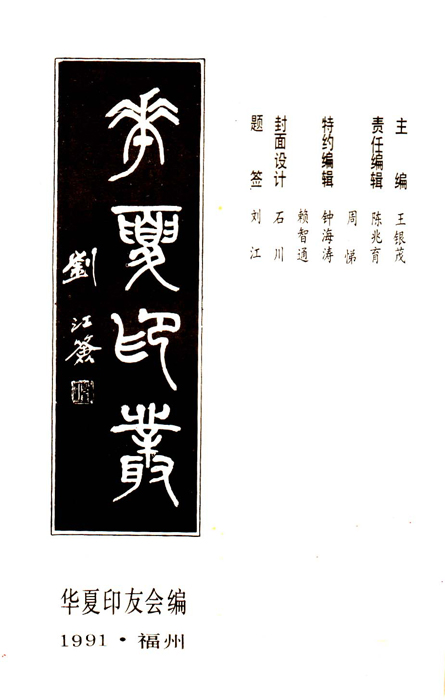 华夏印丛
刘江签
主编 王银茂
责任编辑 陈兆育
周悌
特约编辑 钟海涛
赖智通
封面设计 石川
题签 刘江
华夏印友会编
1991·福州